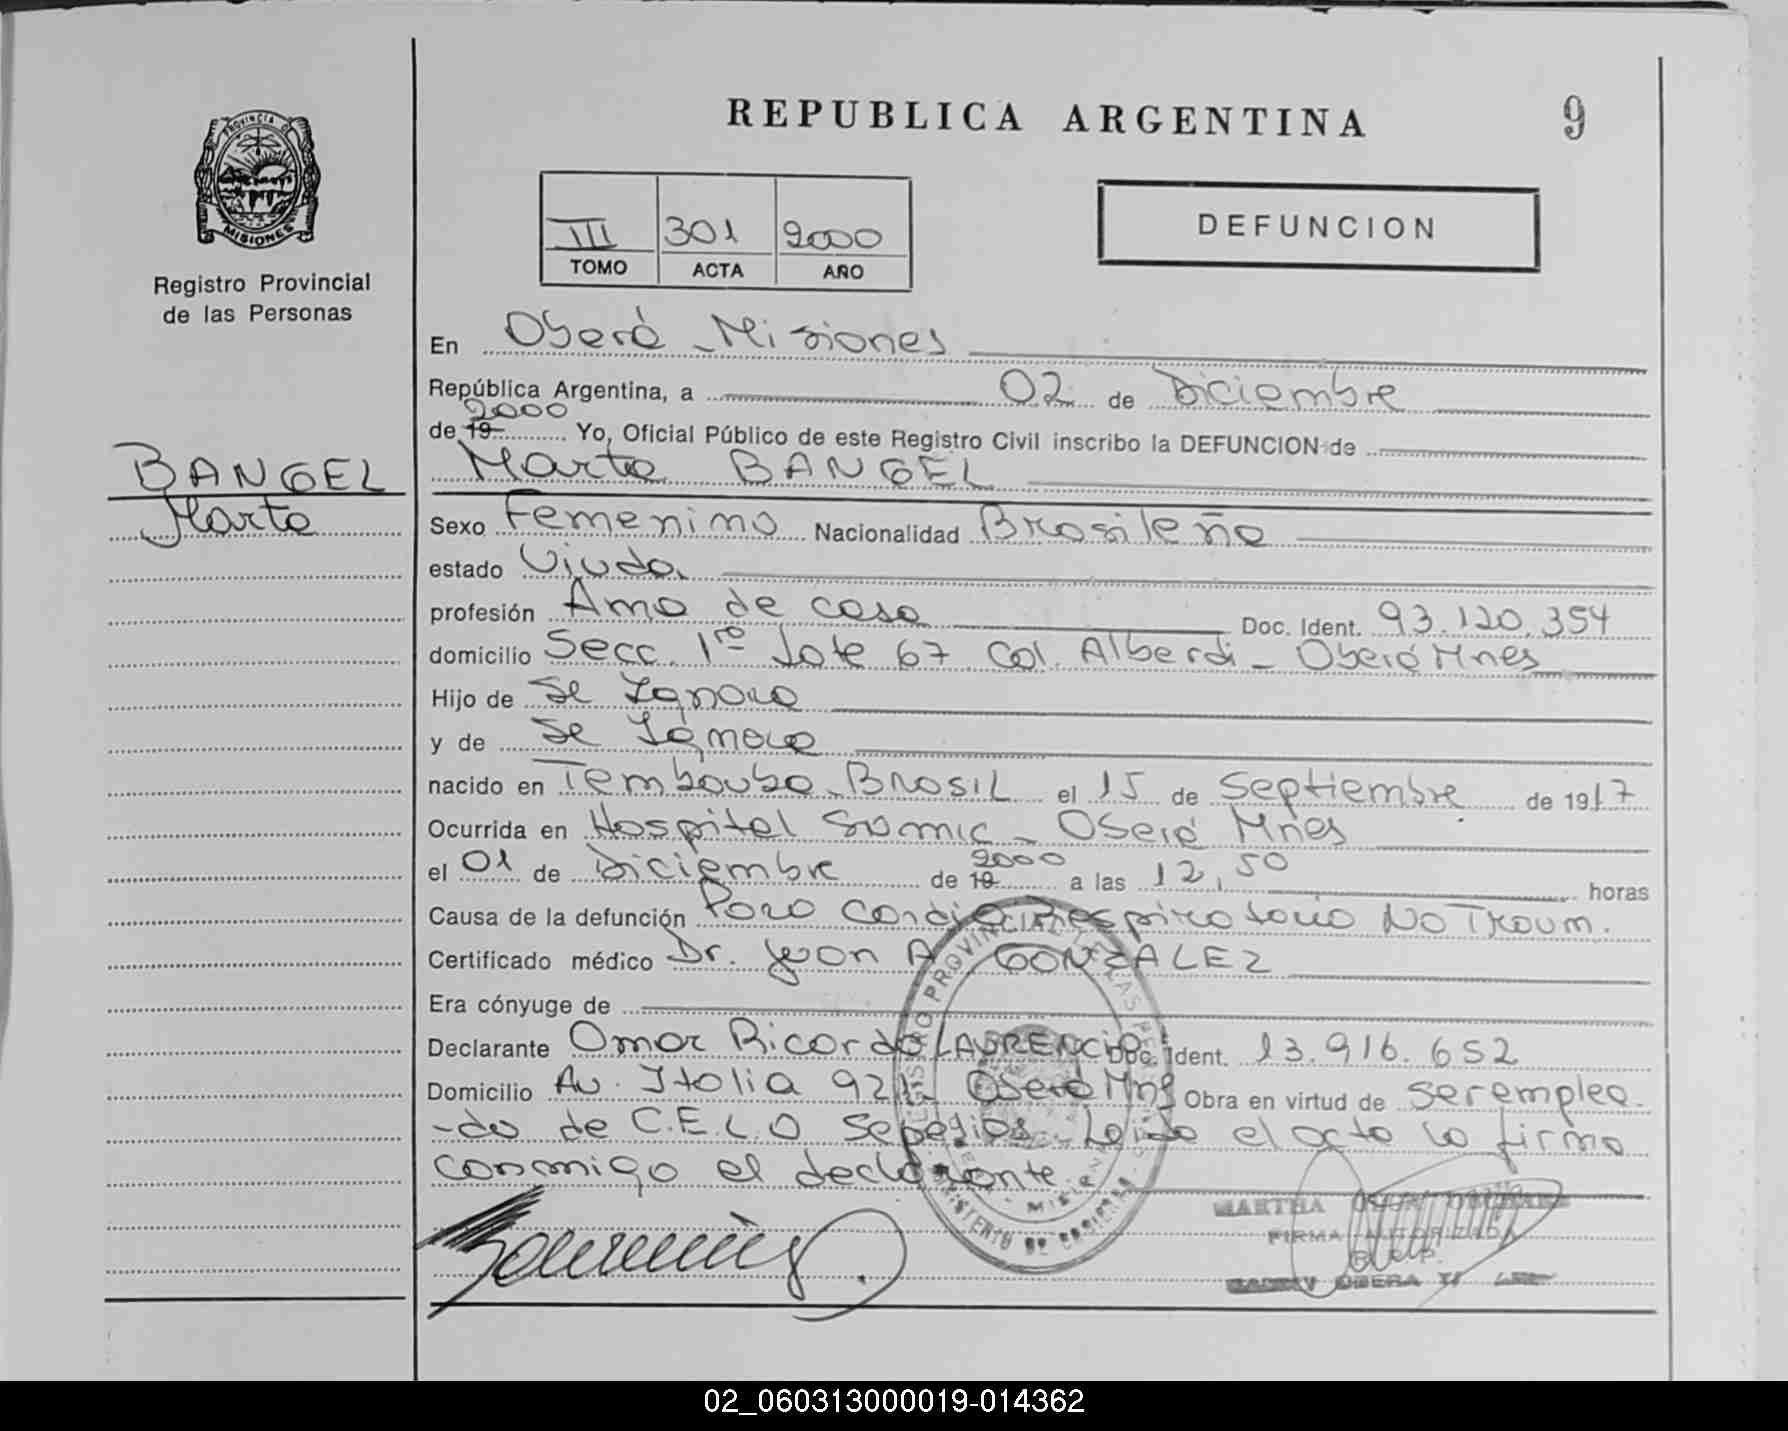 REPUBLICA ARGENTINA
9
PROVINCIA DE
MISIONES
Registro Provincial
de las Personas
III 301 2000
TOMO ACTA AÑO
DEFUNCION
BANGEL
Marta
En Oberá - Misiones
República Argentina, a 02 de Diciembre
de 19 2000 Yo, Oficial Público de este Registro Civil inscribo la DEFUNCION de
Marta BANGEL
Sexo Femenino Nacionalidad Brasileña
estado Viuda
profesión Ama de casa Doc. Ident. 93.120.354
domicilio Secc. 1ra Lote 67 Col. Alberdi - Oberá Mnes
Hijo de Se Ignora
y de Se Ignora
nacido en Tembouba - BRASIL el 15 de Septiembre de 1917
Ocurrida en Hospital Samic - Oberá Mnes
el 01 de Diciembre de 19 2000 a las 12,50 horas
Causa de la defunción Paro Cardio Respiratorio No Traum.
Certificado médico Dr. Juan A GONZALEZ
Era cónyuge de
Declarante Omar Ricardo LAURENCIO Doc. Ident. 13.916.652
Domicilio Av. Italia 921 Oberá Mns Obra en virtud de ser emplea-
-do de C.E.L.O Sepelios. Leída el acta la firma
conmigo el declarante
MARTHA
FIRMA AUTORIZADA
OBERA
02_060313000019-014362